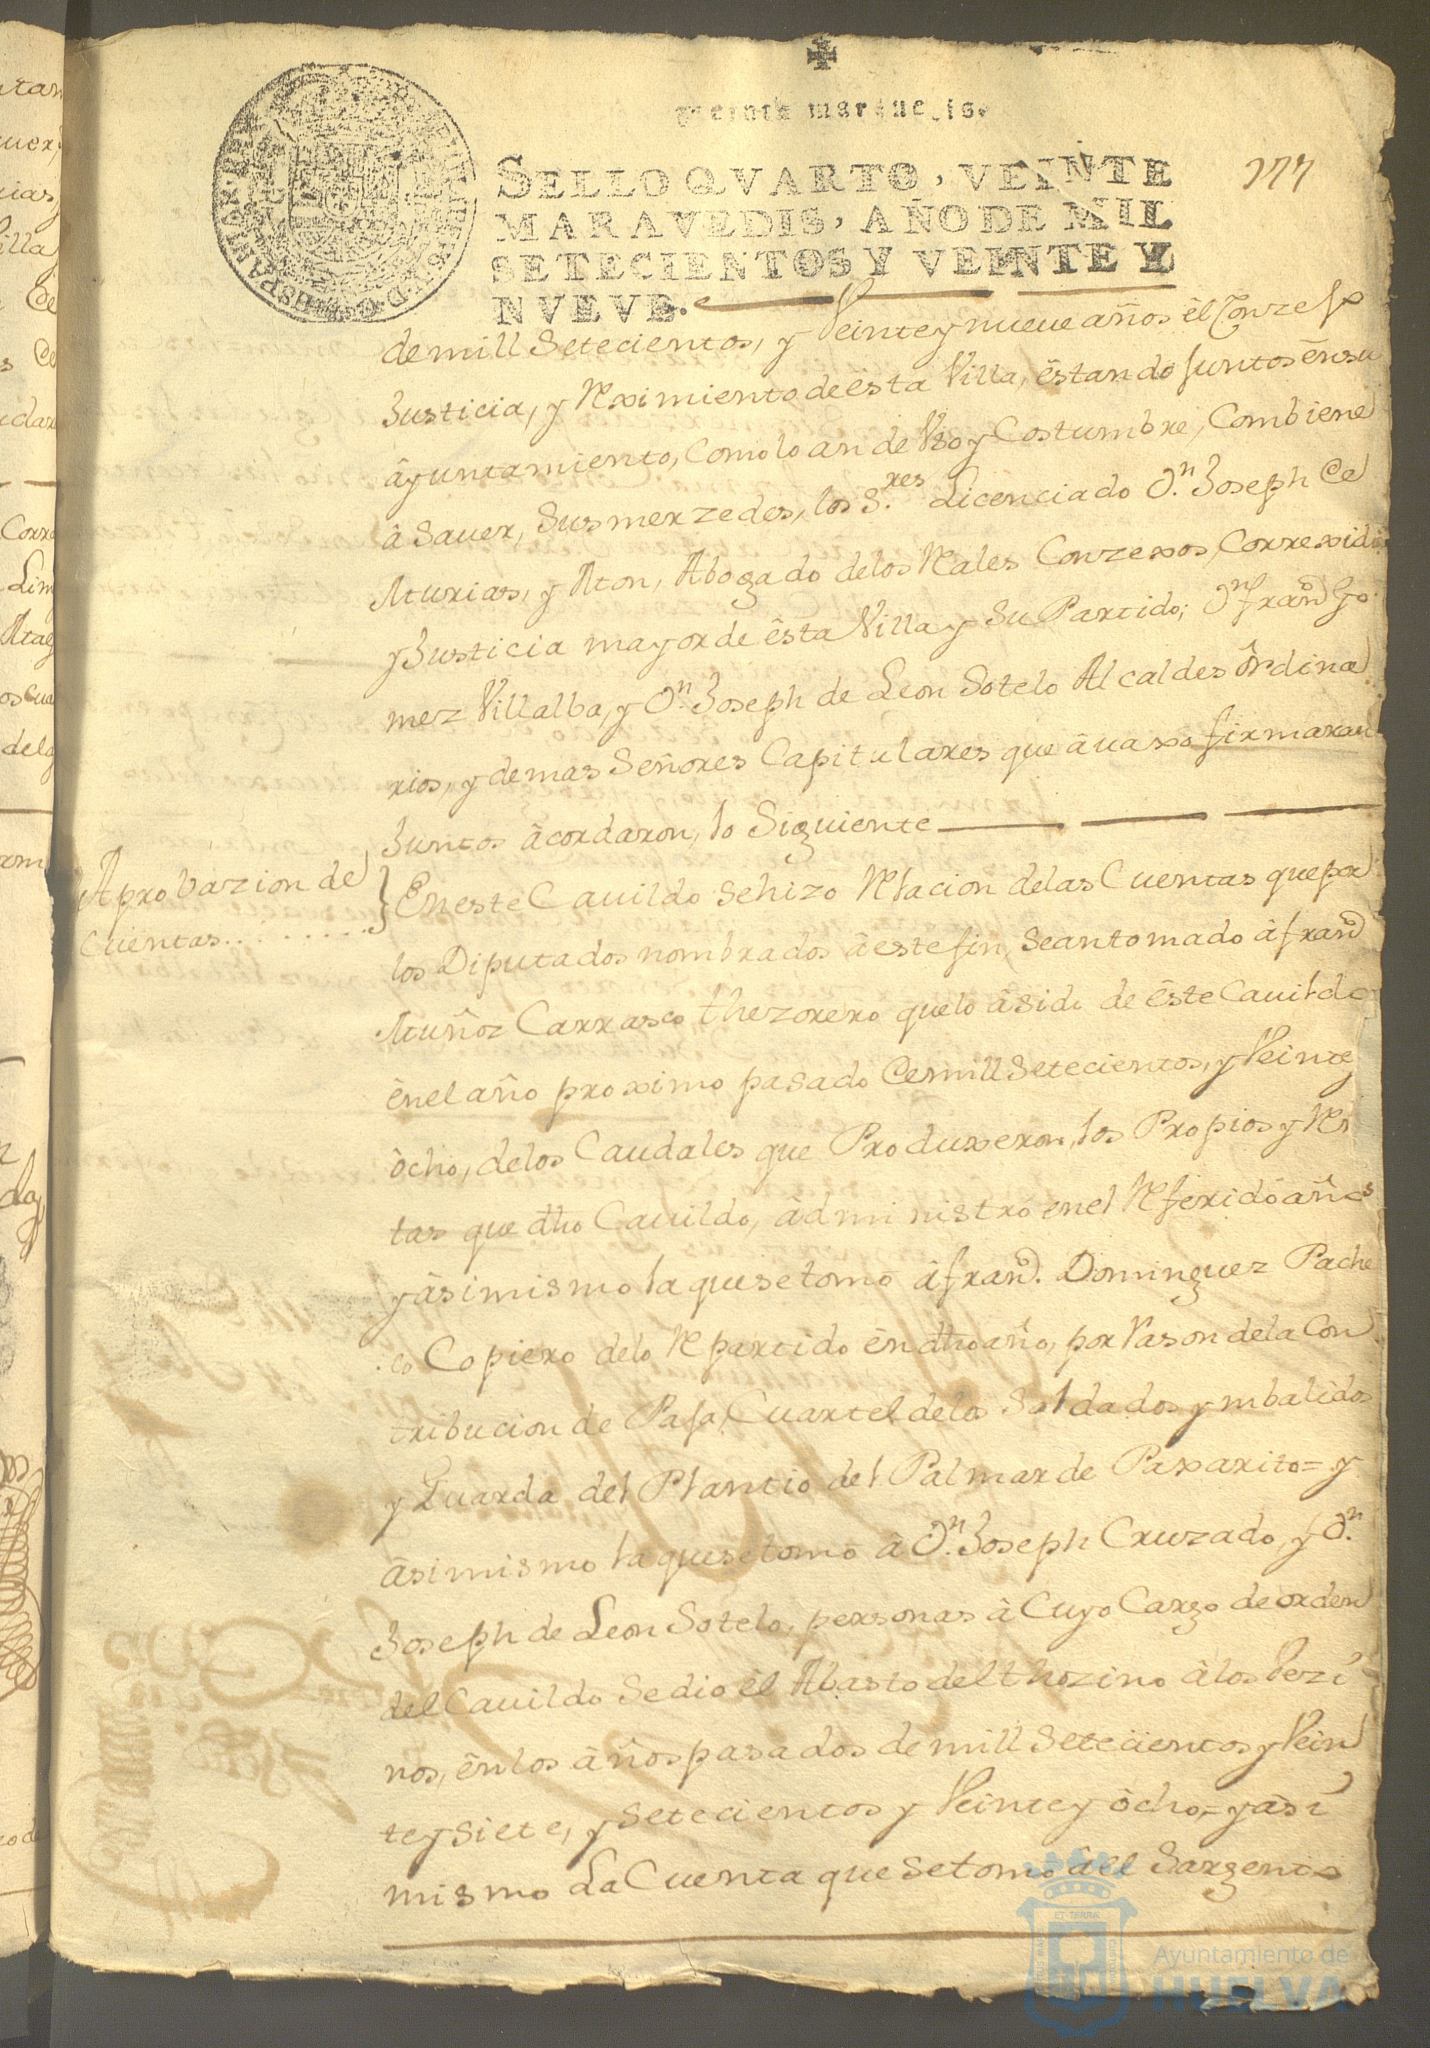 veinte maravedis.
SELLO QVARTO, VEINTE
MARAVEDIS, AÑO DE MIL
SETECIENTOS Y VEINTE Y
NVEVE.
177
de mill Setecientos, y Veinte y nueve años èl Conzejo
Justicia, y Reximiento de èsta Villa, èstando Juntos èn su
âyuntamiento, Como lo an de Vso y Costumbre, Combiene
â Sauer, Sus merzedes, los S.res Licenciado D.n Joseph de
Aturias, y Aton, Abogado de los Reales Conzexos, Correxidor
y Justicia mayor de èsta Villa y Su Partido; D.n fran.co Go
mez Villalba, y D.n Joseph de Leon Sotelo Alcaldes ôrdina
rios, y demas Señores Capitulares que âuaxo firmaran
Juntos âcordaron, lo Siguiente
Aprobazion de
Cuentas
En este Cauildo Se hizo Relacion de las Cuentas que por
los Diputados nombrados â este fin, Se an tomado â fran.co
Muñoz Carrasco thezorero que lo â Sido de èste Cauildo
èn el año proximo pasado de mill Setecientos, y Veinte y
òcho, de los Caudales que Produxeron, los Propios y Ren
tas que dho Cauildo, âdministró en el Referido año
y âsimismo la que se tomo â fran.co Dominguez Pache
co Copiero de lo Repartido èn dho año, por Rason de la Con
tribucion de Paja, Cuartel de los Soldados ymbalidos
y Guarda del Plantio del Palmar de Paxarito= y
âsimismo la que se tomo â D.n Joseph Cruzado, y D.n
Joseph de Leon Sotelo, personas â Cuyo Cargo de orden
del Cauildo Se dio èl Abasto del thozino â los Vezi
nos, èn los âños pasados de mill Setecientos y Vein
te y Siete, y Setecientos y Veinte y òcho= y âsi
mismo La Cuenta que Se tomo âel Sargento
Ayuntamiento de
HUELVA